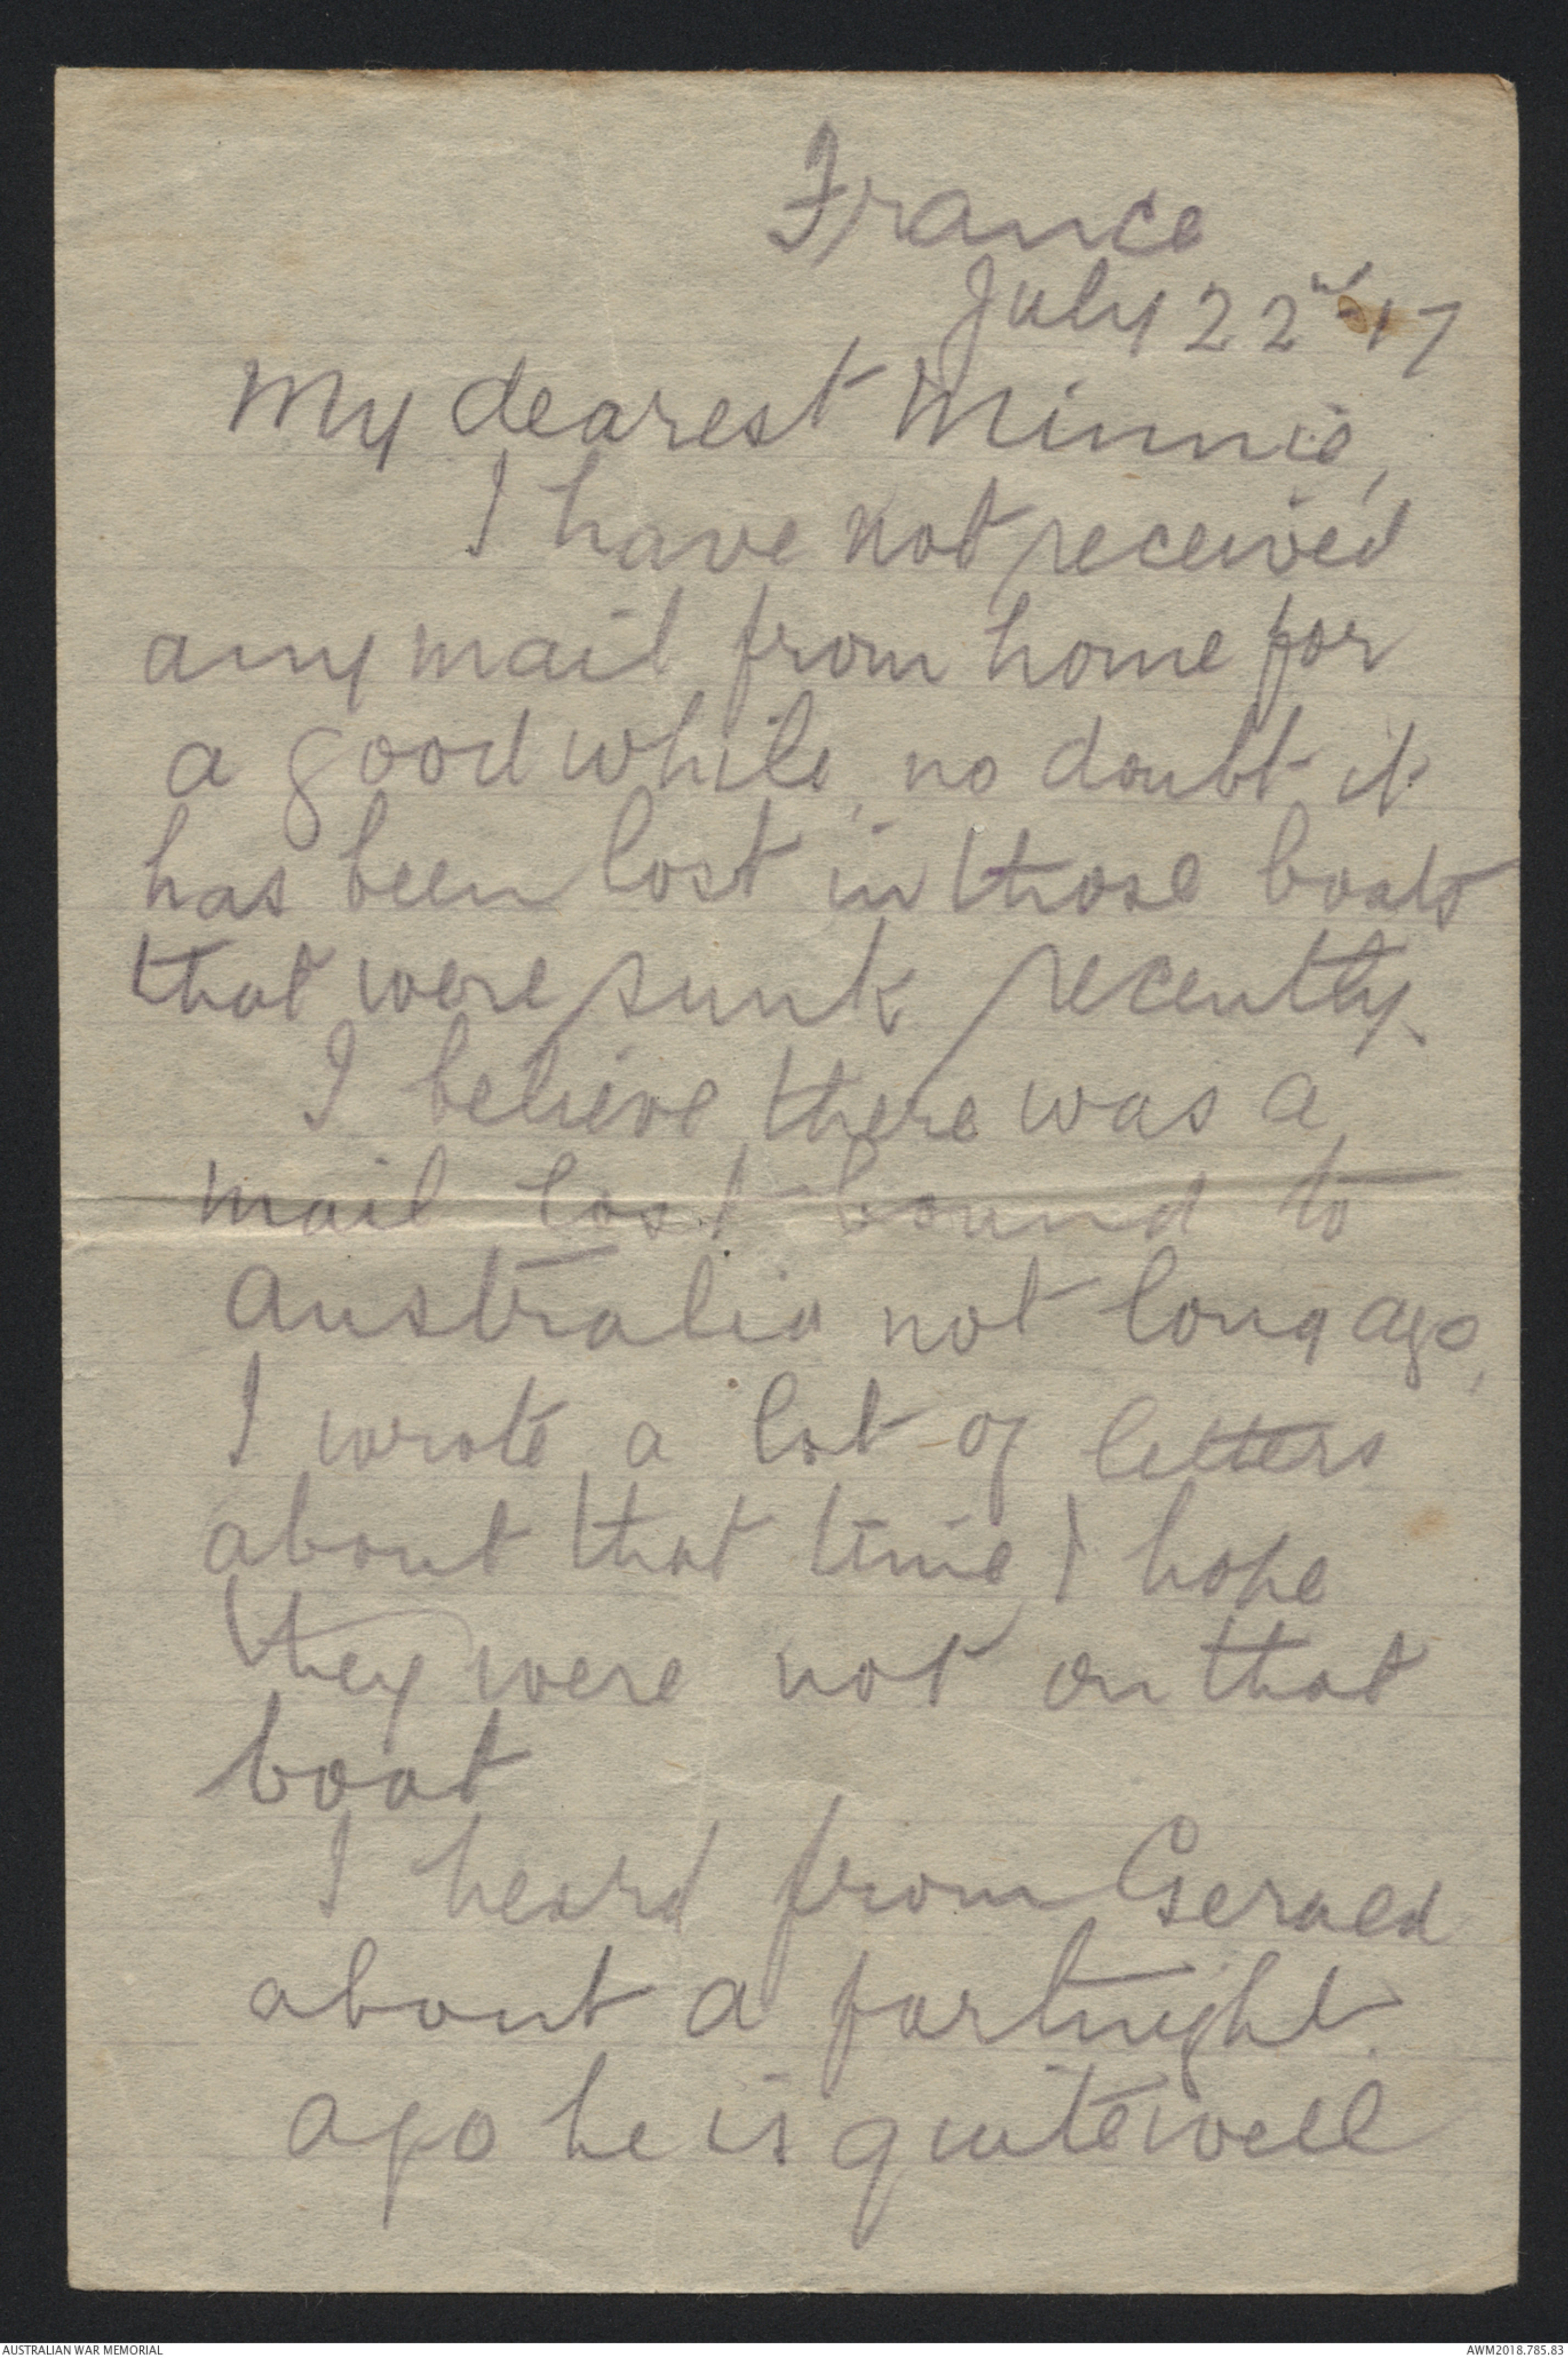 France
July 22nd 17
My dearest Minnie,
I have not received
any mail from home for
a good while, no doubt it
has been lost in those boats
that were sunk recently.
I believe there was a
mail lost bound to
Australia not long ago,
I wrote a lot of letters
about that time I hope
they were not on that
boat
I heard from Gerald
about a fortnight
ago he is quite well
AUSTRALIAN WAR MEMORIAL
AWM2018.785.83